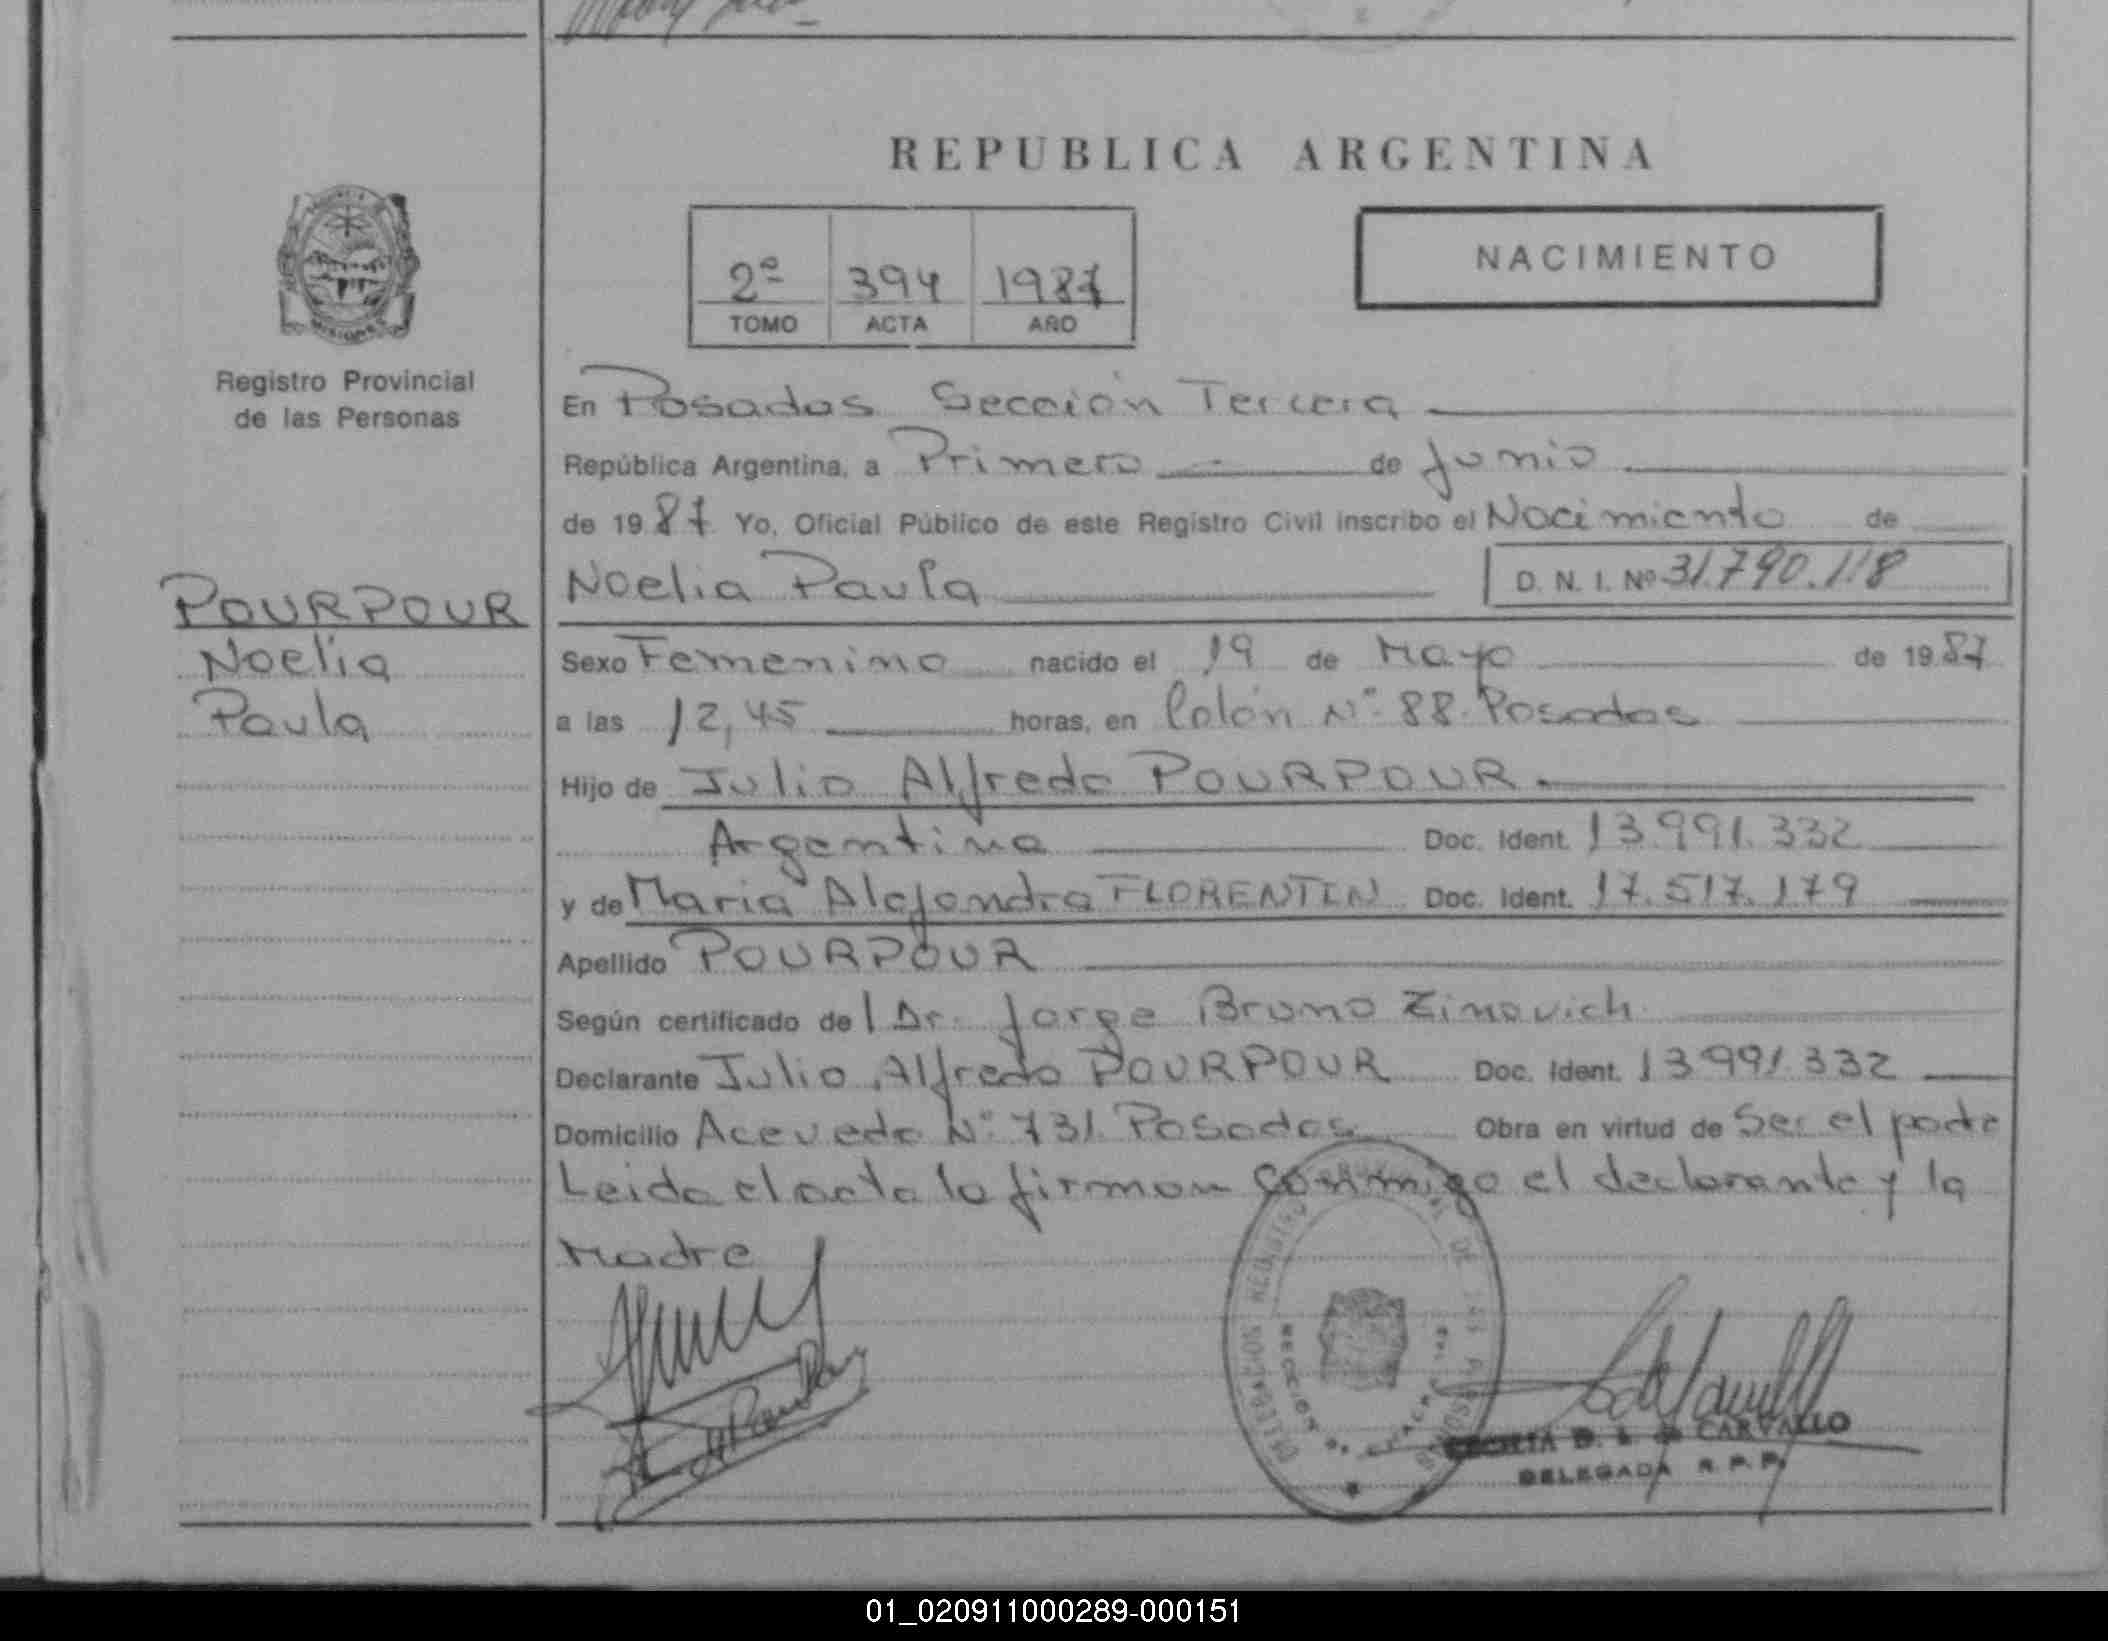 REPUBLICA ARGENTINA
NACIMIENTO
2º 394 1987
TOMO ACTA AÑO
MISIONES
Registro Provincial
de las Personas
POURPOUR
Noelia
Paula
En Posadas Sección Tercera
República Argentina, a Primero de Junio
de 1987 Yo, Oficial Público de este Registro Civil inscribo el Nacimiento de
Noelia Paula D. N. I. Nº 31.790.118
Sexo Femenino nacido el 19 de Mayo de 1987
a las 12,45 horas, en Colón Nº 88 Posadas
Hijo de Julio Alfredo POURPOUR
Argentina Doc. Ident. 13.991.332
y de Maria Alejandra FLORENTIN Doc. Ident. 17.517.179
Apellido POURPOUR
Según certificado del Dr. Jorge Bruno Zinovich
Declarante Julio Alfredo POURPOUR Doc. Ident. 13.991.332
Domicilio Acevedo Nº 731 Posadas Obra en virtud de Ser el padre
Leida el acta la firman conmigo el declarante y la
Madre
DELEGACION REGISTRO PROVINCIAL DE LAS PERSONAS
CARVALLO
DELEGADA R. P. P.
01_020911000289-000151